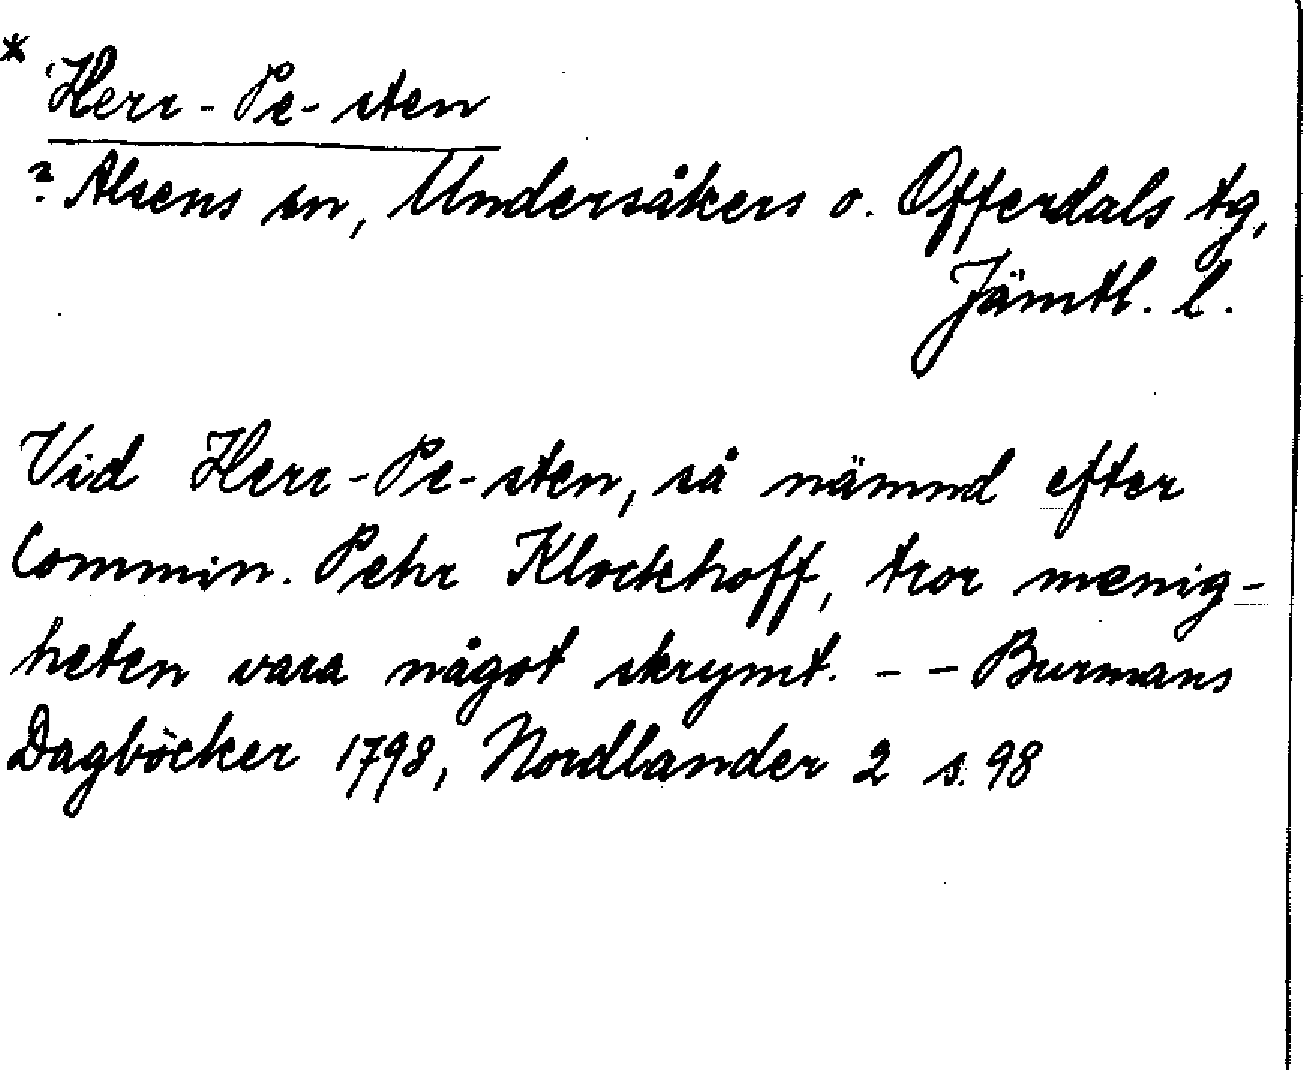 * Herr-Pe-sten
? Alsens sn, Undersåkers o. Offerdals tg,
Jämtl. l.
Vid Herr-Pe-sten, så nämnd efter
Commin. Pehr Klockhoff, tror menig-
heten vara något skrymt. - - Burmans
Dagböcker 1798, Nordlander 2 s. 98